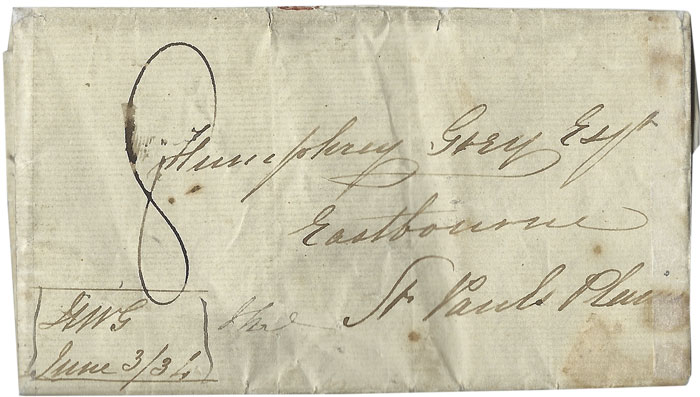 8
Humphrey Grey Esqr
Eastbourne
St. Pauls Plain
HWG
June 3/34